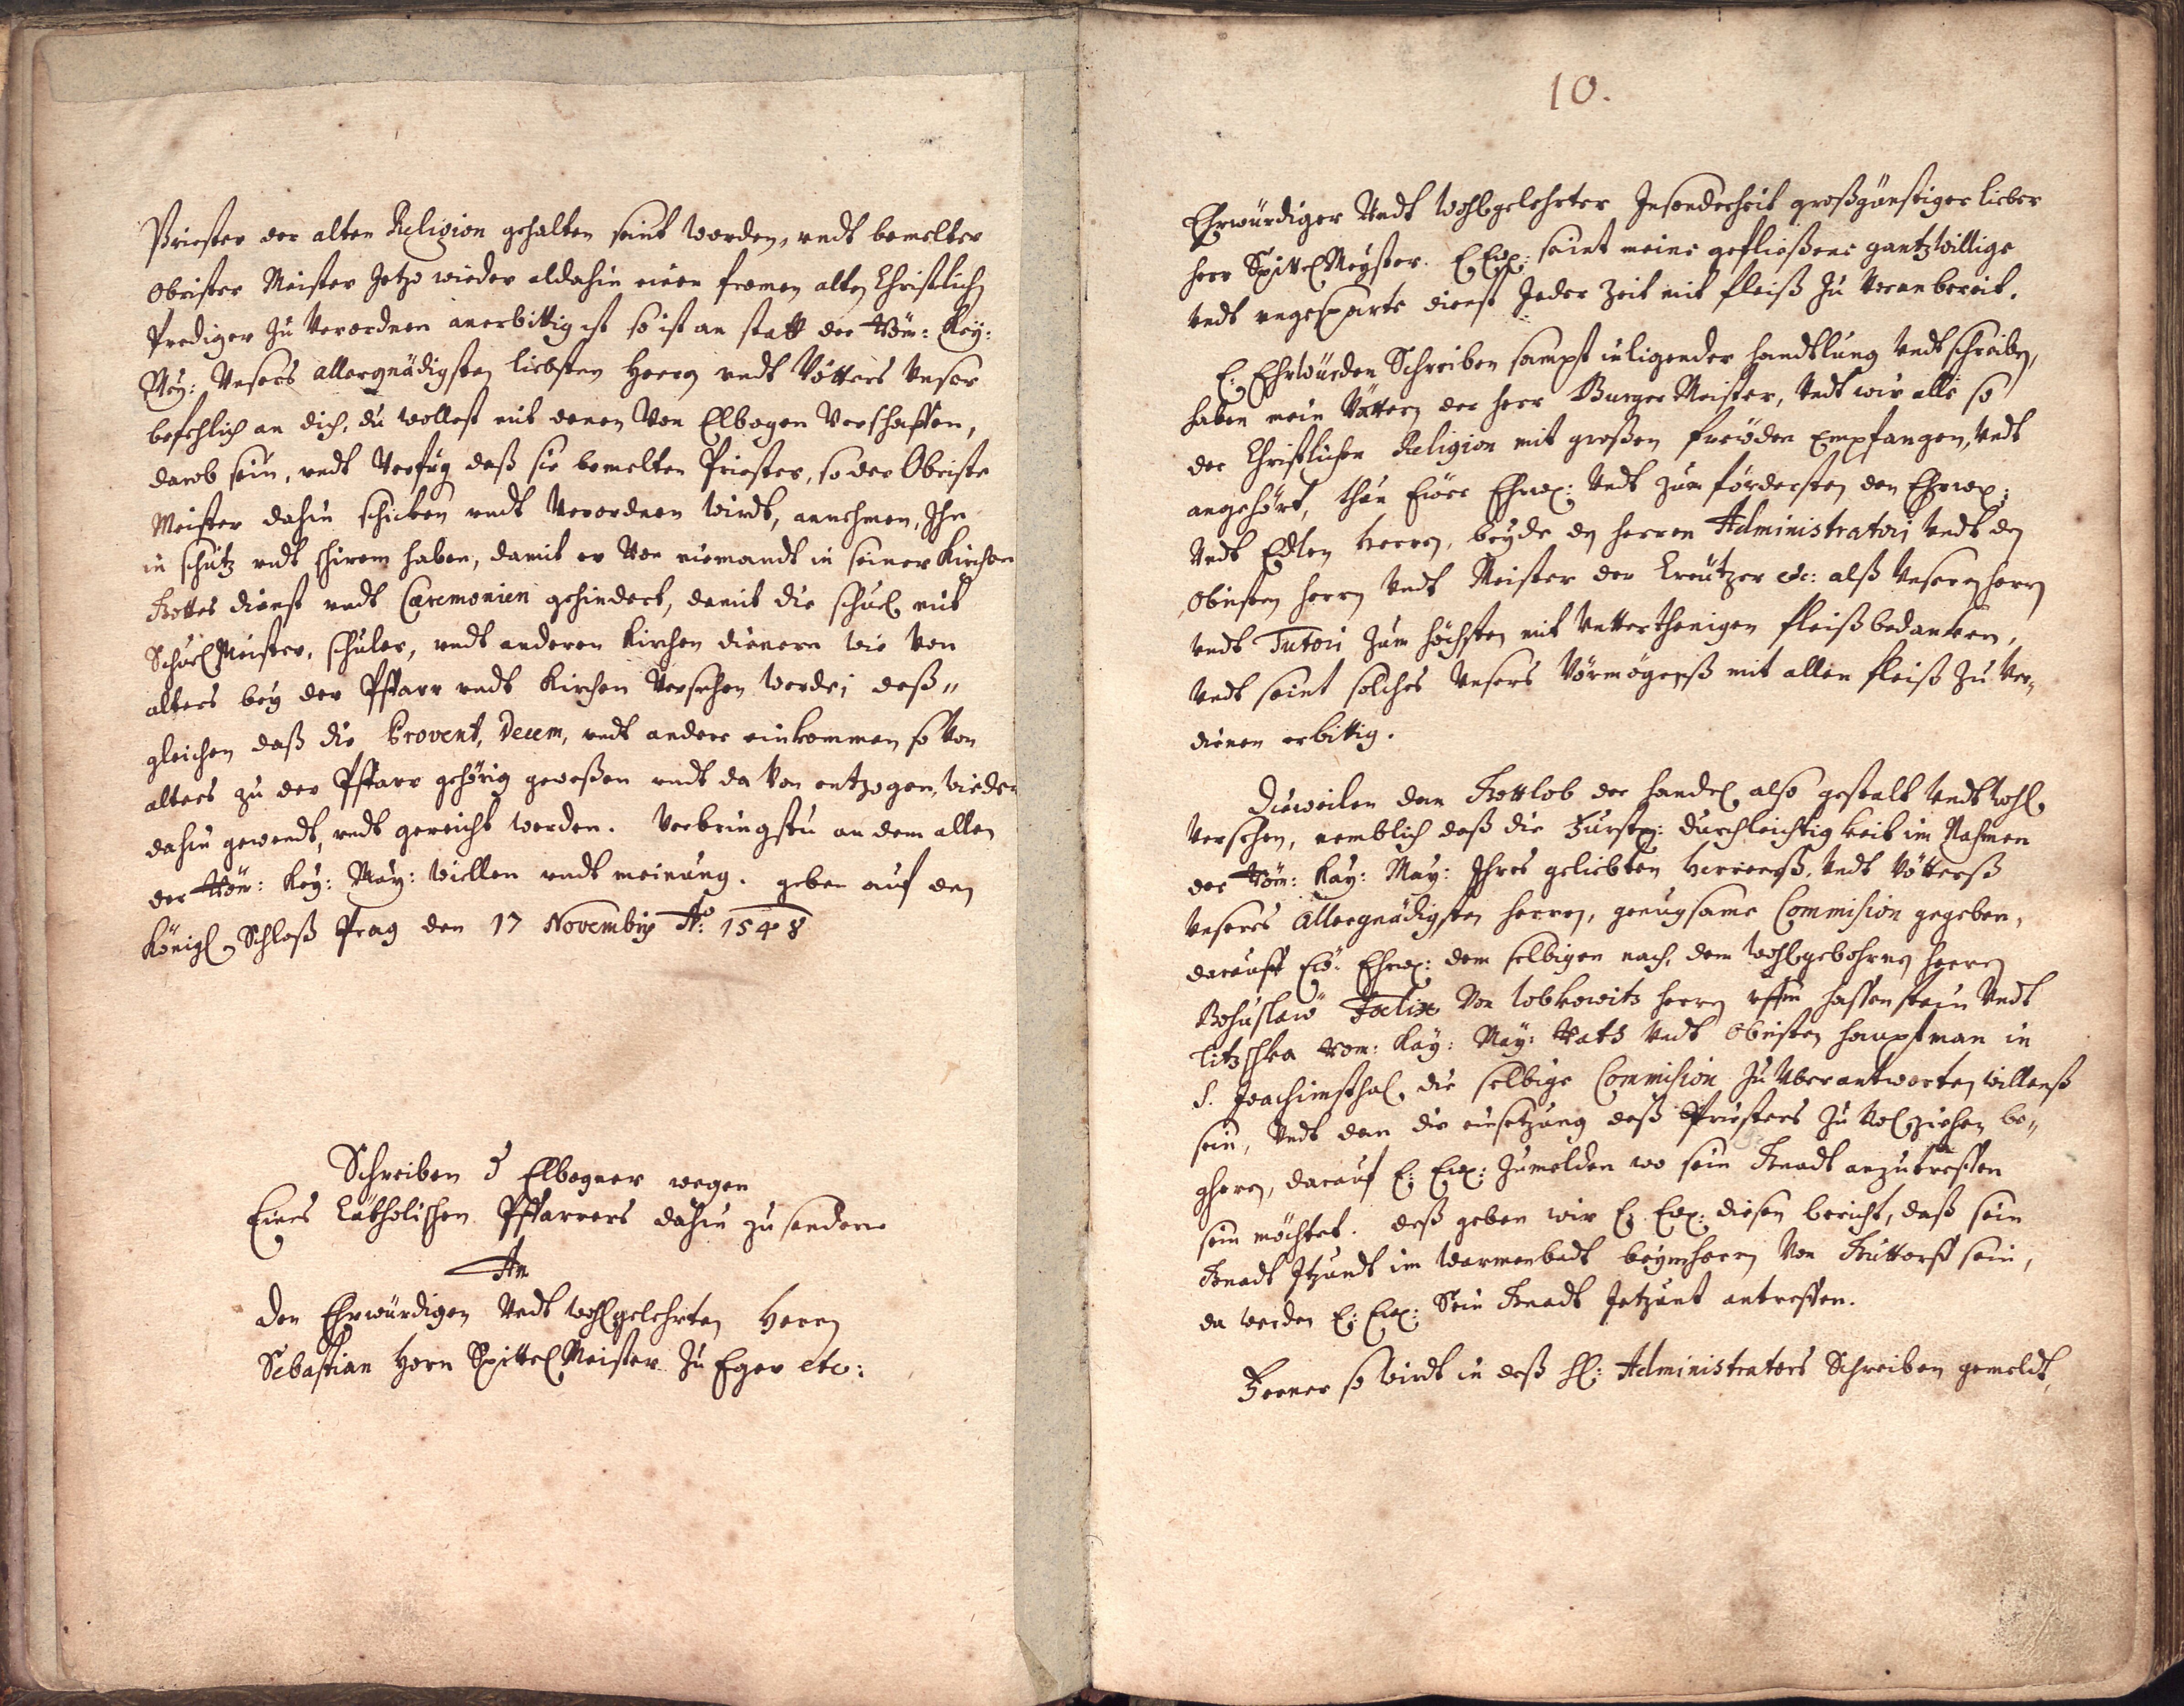 Priester der alten Religion gehalten seint worden, undt bemelter
Obrister Meister Jetzo wieder aldahin einen fromen alten Christlichen
Prediger zu Verordnen anerbittig ist so ist an statt der Röm: Key:
May: Unsers allergnädigsten liebsten Herrn undt Vatters Unser
befehlich an dich, du wollest mit denen Von Elbogen Verschaffen,
darob sein, undt Verfug daß sie bemelten Priester, so der Obriste
Meister dahin schicken undt Verordnen wirdt, annehmen, Ihn
in schutz undt schirem haben, damit er Von niemandt in seiner Kirchen
Gottes dienst undt Cæremonien gehindert, damit die schuel mit
Schuel Meister, schuler, undt anderen Kirchen dienern wie Von
alters bey der Pffarr undt Kirchen Versehen werde; deß„
gleichen daß die Provent, Decem, undt andere einkommen so Von
alters zu der Pffarr gehörig geweßen undt da Von entzogen, wieder
dahin gewendt, undt gereicht werden. Verbringstu an dem allen
der Röm: Key: May: Willen undt meinung. geben auf den
Königl Schloß Prag den 17 Novembris Aō: 1548
Schreiben d Elbogner wegen
Eines Catholischen Pffarrers dahin zu senden
An
Den Ehrwürdigen Undt wohlgelehrten Herrn
Sebastian Horn Spittel Meister Zu Eger etc:
10.
Ehrwürdiger Undt Wohlgelehrter Insonderheit großgünstiger lieber
herr Spittel Meyster. E Ew: seint meine gefließene gantz willige
undt ungesparte dienst Jeder Zeit mit fleiß zu Voran bereit.
E: Ehrwürden Schreiben sampt inligender handtlung undt schreiben,
haben mein Vattern der herr Burger Meister, Undt wir alle so
der Christlichen Religion mit großen freüden Empfangen, Undt
angehört, thun Eüer Ehrw: Undt zum fördersten den Ehrw:
Undt Edlen Herren, beyde den herren Administratorj Undt den
Obristen herrn Undt Meister der Creützer etc: alß Unseren herrn
undt Tutori zum höchsten mit Untterthenigen fleiß bedancken,
Undt seint solches Unsers Vörmögenß mit allen fleiß Zu Ver„
dienen erbittig.
Dieweilen dan Gottlob der handel also gestalt Undt wohl
Versehen, nemblich daß die Fürstl: Durchleichtigkeit im Nahmen
der Röm: Kay: May: Ihres geliebten Herrenß, Undt Vötterß
Unsers Allergnädigsten herren, genugsame Commision gegeben,
darauff Eü: Ehrw: dem selbigen nach, dem Wohlgebohrnen herrn
Bohuslaw Fœlix Von Lobkowitz herrn uffm hassenstein Undt
Titzschka Röm: Kay: May: Rath Undt Obristen Hauptman in
S. Joachimsthal die selbige Commision zu Uberantworten Willenß
sein, Undt dan die einsetzung deß Priesters zu Volziehen be„
gheren, darauf E: Ew: Zumelden wo sein Gnadt anzutreffen
sein möchtet. deß geben wir E: Ew: diesen bericht, daß sein
Gnadt Itzundt im Warmenbadt beym herrn Von Guttorff sein,
da werden E: Ew: Sein Gnadt Jetzunt antreffen.
Ferner so wirdt in deß H: Administrators Schreiben gemeldt,